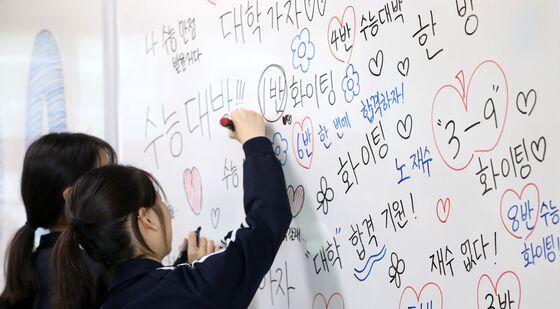 나 수능 만점
받을거다
대학 가자
4반
수능대박
화이팅
한 방
수능 대박!!!
1반
화이팅
6반
한 번에
합격하자!
화이팅
노 재수
"3-9"
화이팅
수능
"대학" 합격 기원!
재수 없다!
8반
수능
화이팅
3반